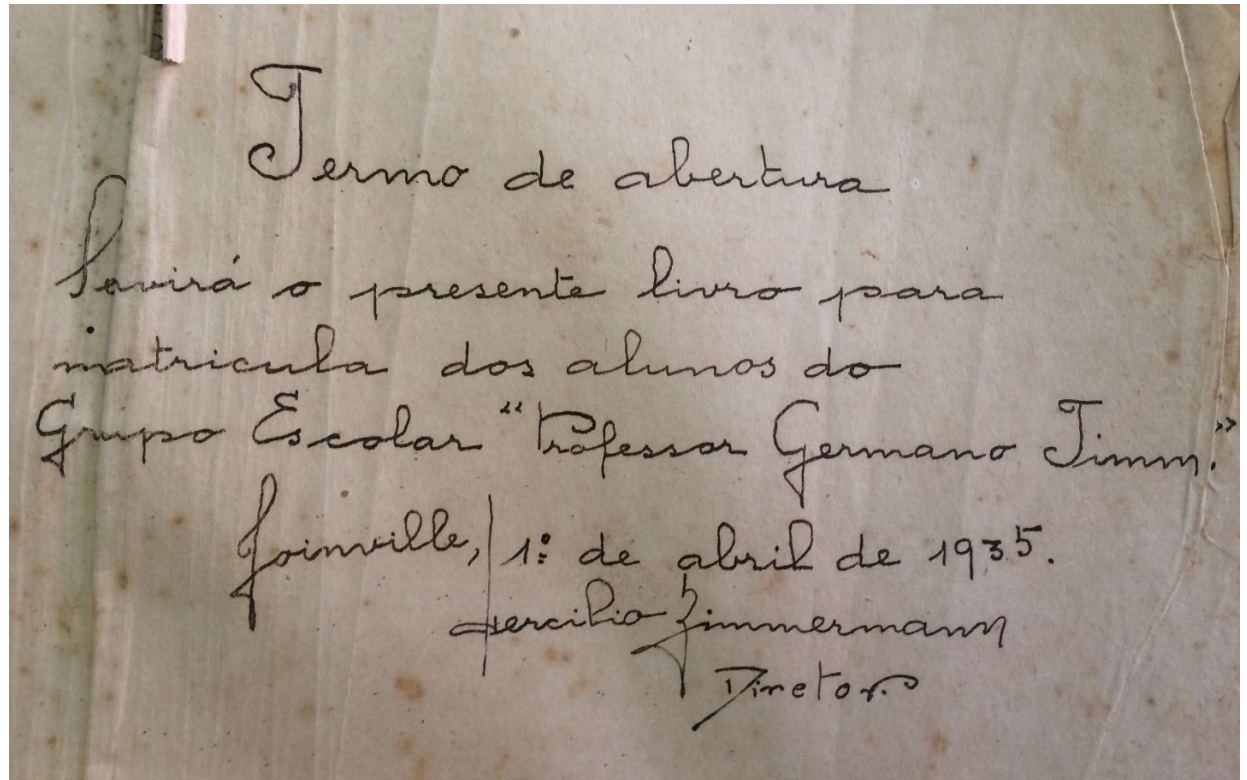 Termo de abertura
Servirá o presente livro para
matricula dos alunos do
Grupo Escolar "Professor Germano Timm."
Joinville, 1º de abril de 1935.
Hercilio Zimmermann
Diretor.